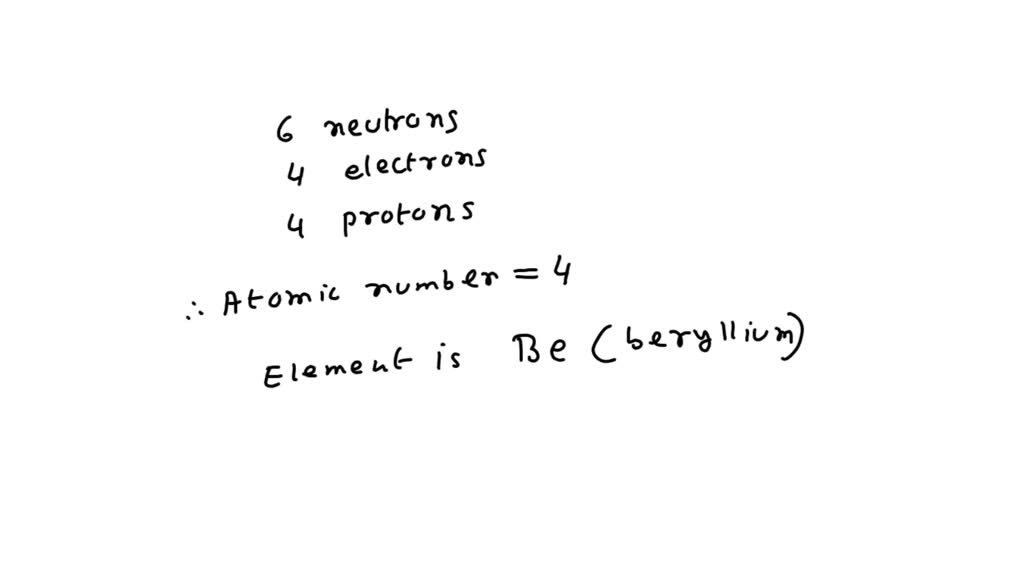 6 neutrons
4 electrons
4 protons
∴ Atomic number = 4
Element is Be (beryllium)